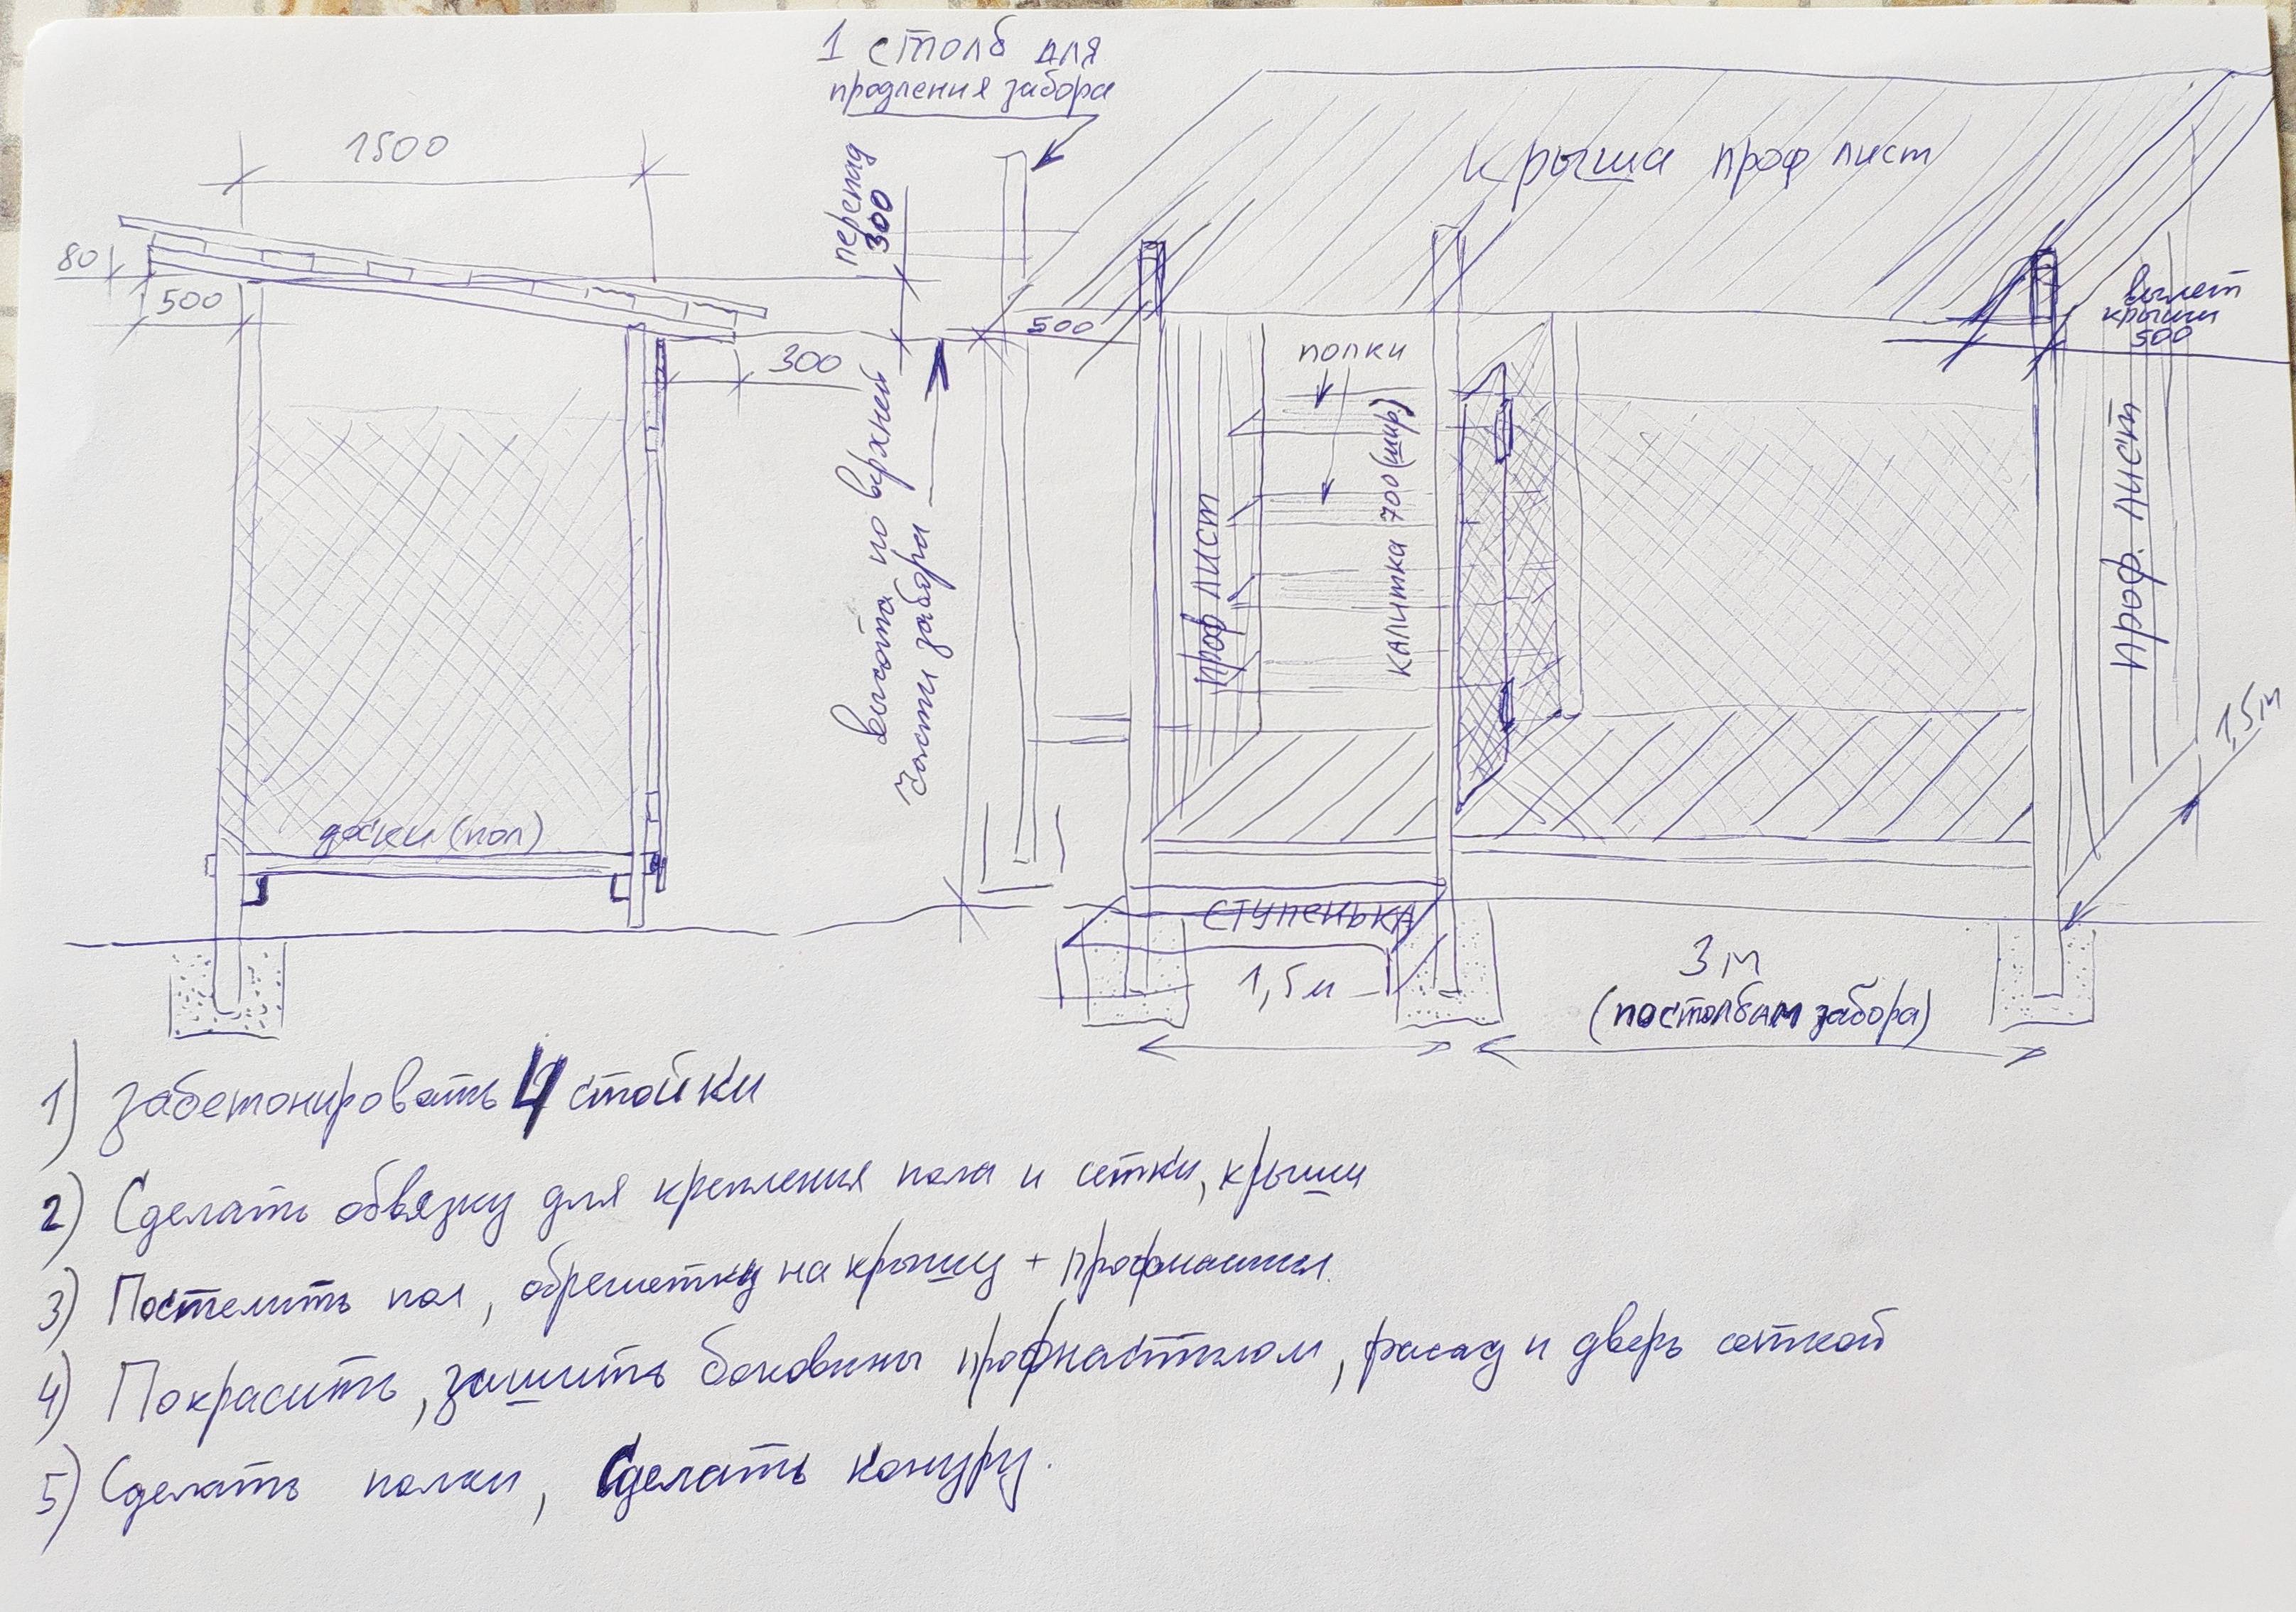 1 столб для
продления забора
1500
80
500
300
перепад
300
высота по верхней
части забора
доски (пол)
Крыша проф лист
500
вылет
крыши
500
полки
проф лист
калитка 700 (шир.)
проф. лист
1,5м
ступенька
1,5м
3 м
(по столбам забора)
1) Забетонировать 4 стойки
2) Сделать обвязку для крепления пола и сетки, крыши
3) Постелить пол, обрешетку на крышу + профнастил.
4) Покрасить, зашить боковины профнастилом, фасад и дверь сеткой
5) Сделать полки, Сделать конуру.